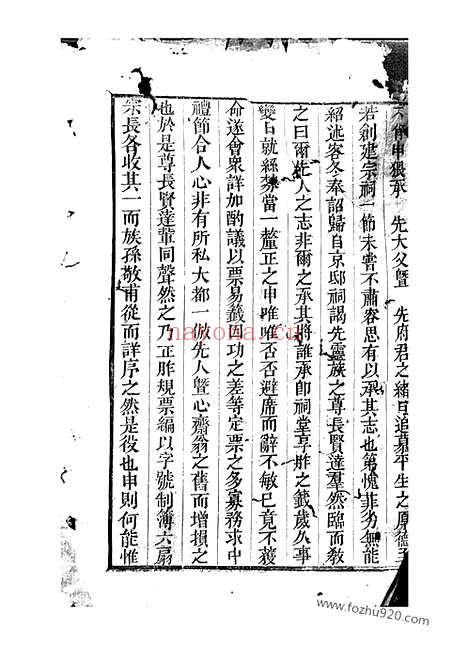 申猥承 先大父曁 先府君之緒旦追慕平生之厚德至
若創建宗祠一節未嘗不肅容思有以承其志也第愧菲劣無能
紹述客冬奉詔歸自京邸祠謁先靈族之尊長賢達羣然臨而敎
之曰爾先人之志非爾之承其將誰承卽祠堂享胙之籤歲久事
變日就絲棼當一釐正之申唯唯否否避席而辭不敏已竟不獲
命遂會衆詳加酌議以票易籤因功之差等定票之多寡務求中
禮節合人心非有所私大都一倣先人曁心齋翁之舊而增損之
也於是尊長賢達輩同聲然之乃正胙規票編以字號制簿六扇
宗長各收其一而族孫敬甫從而詳序之然是役也申則何能惟
nayona.cn
www.fozhu920.com